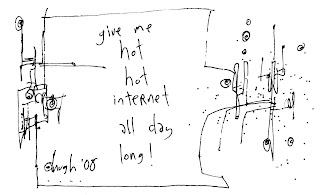 give me
hot
hot
internet
all day
long!
@hugh '08